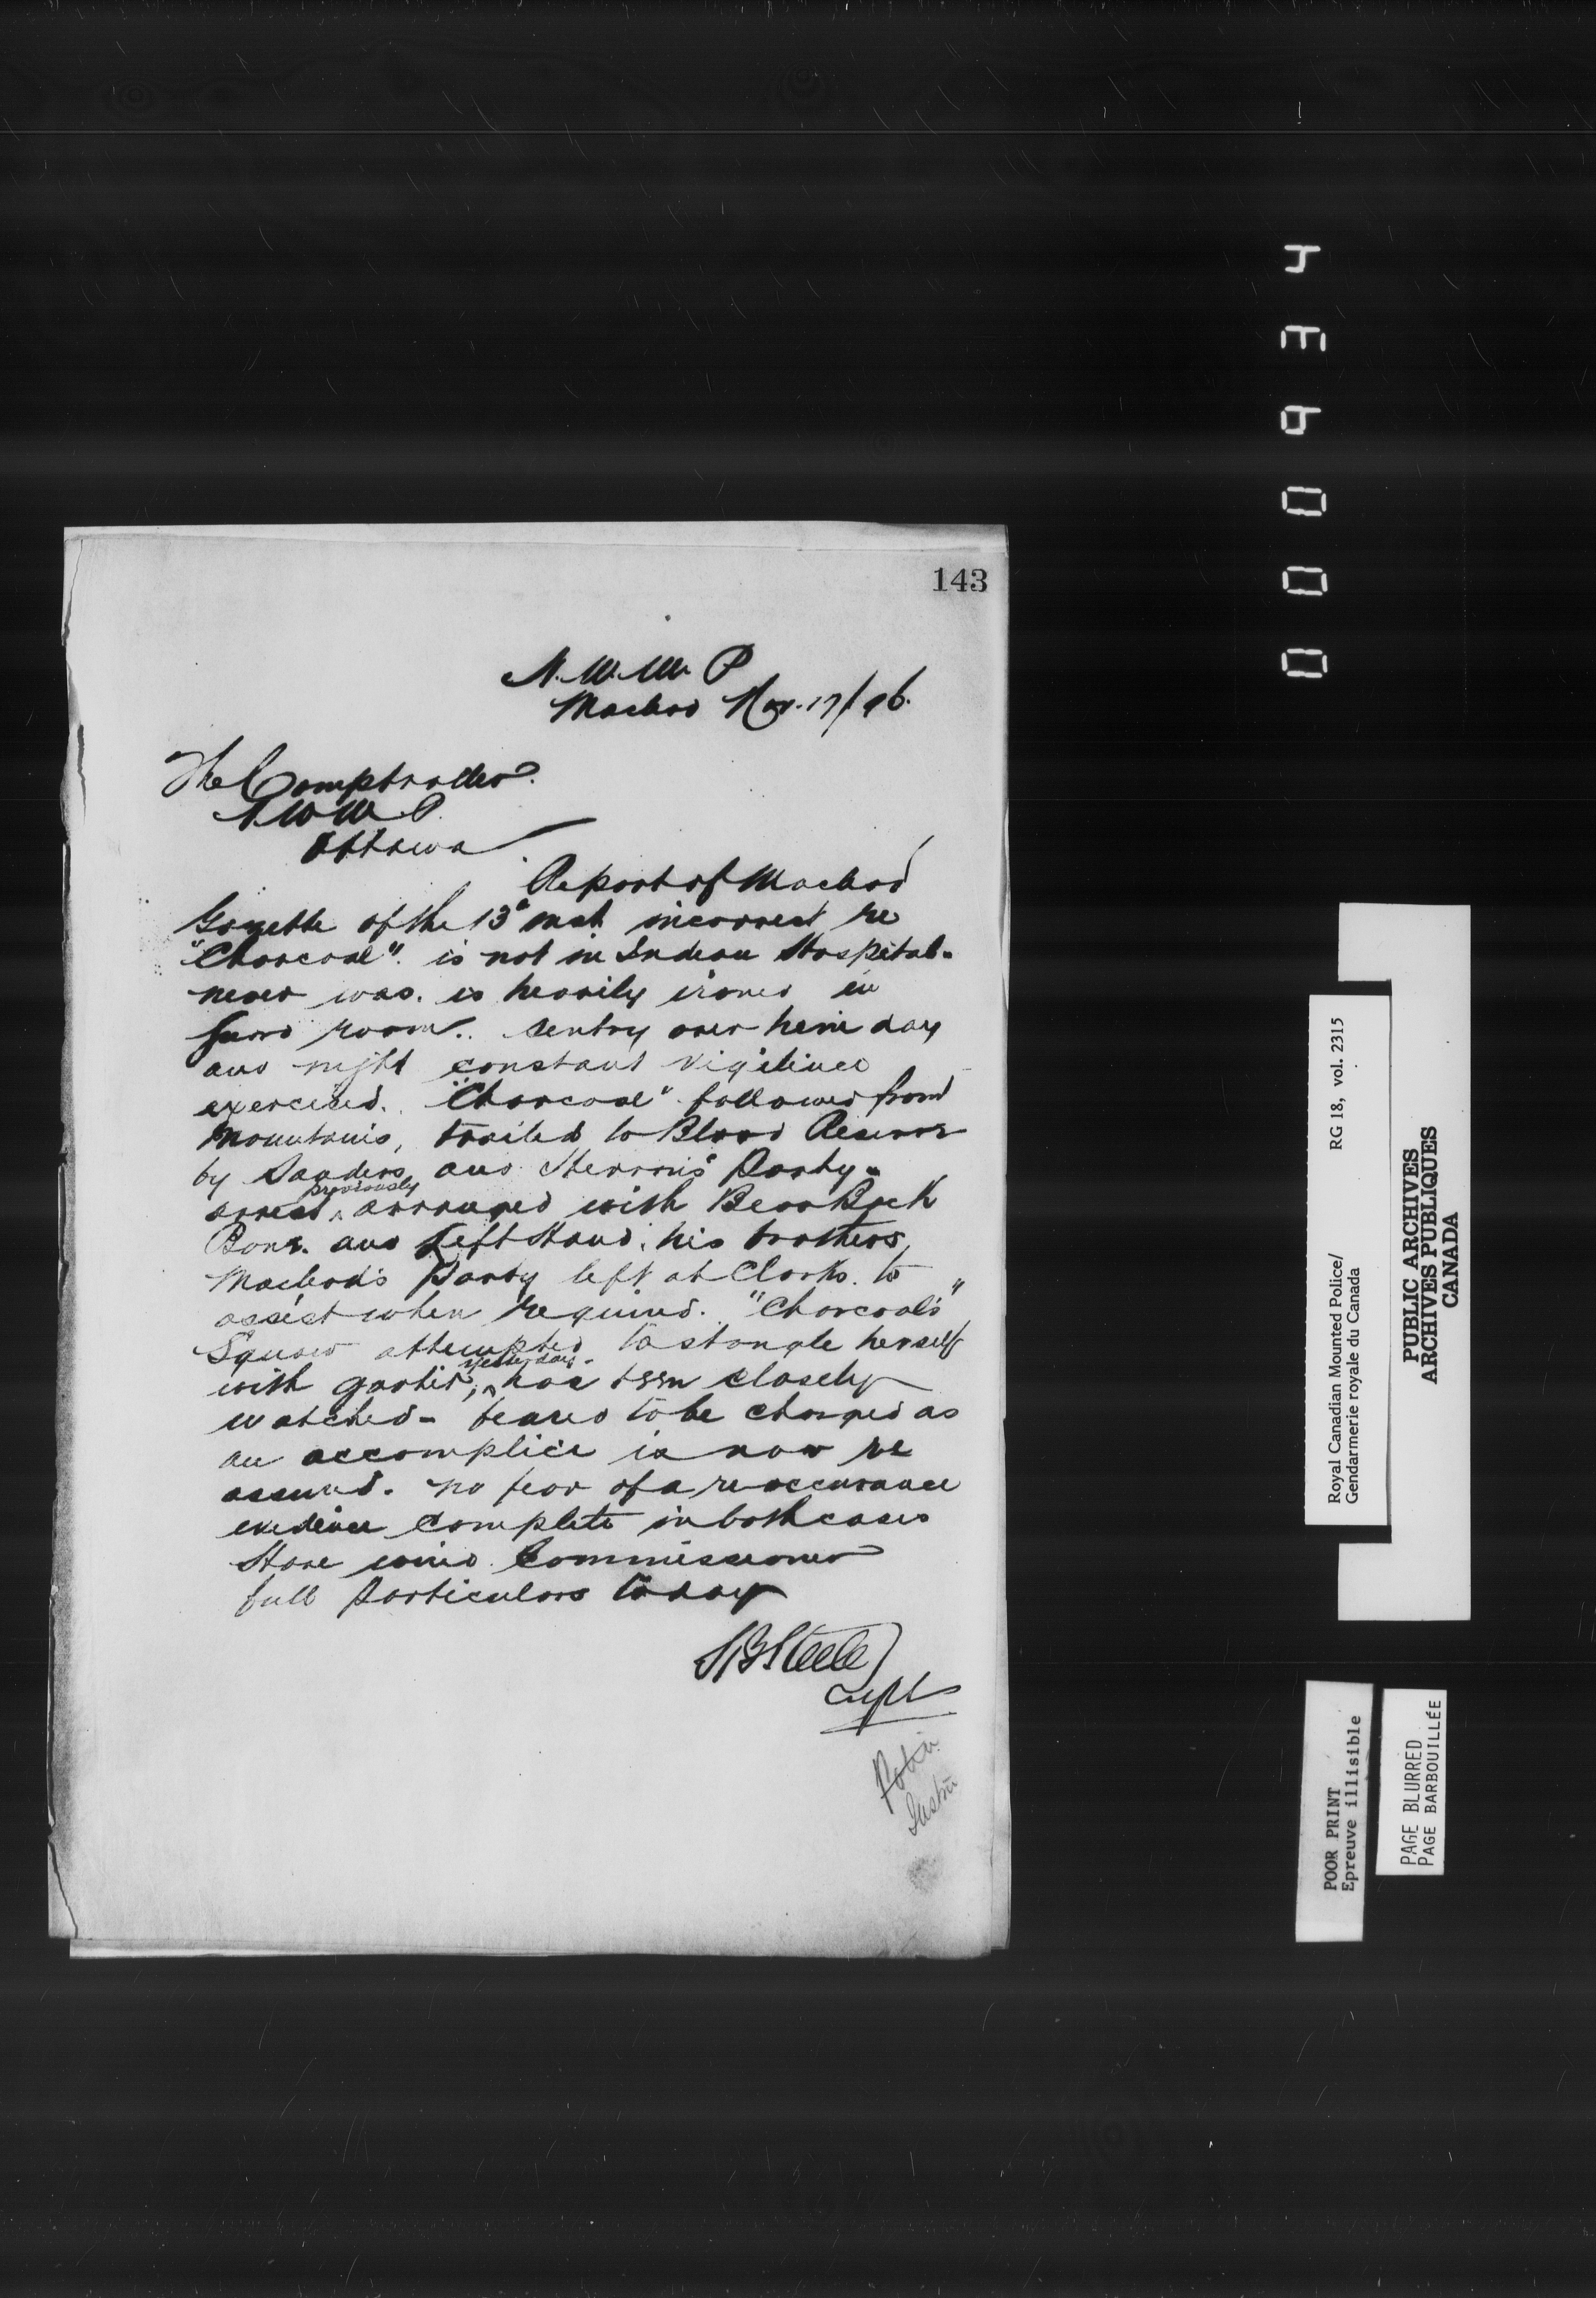 143
N.W.M.P
Macleod Nov. 17/96.
The Comptroller.
N.W.M.P.
Ottawa
Report of Macleod
Gazette of the 13th inst incorrect re
"Charcoal". is not in Indian Hospital-
never was. is heavily ironed in
Guard room.. Sentry over him day
and night constant vigilince
exercised. "Charcoal" followed from
Mountains, trailed to Blood Reserve
by Sanders and party-
previously
arrest ^ arranged with Bear Back
Bone. and Left Hand, his brothers,
Macleod's Party left at Clarks. to
assist when required. "Charcoal's"
Squaw attempted to strangle herself
yesterday-
with garter, ^ has been closely
watched- feared to be charged as
an accomplice is now re
assured. no fear of a reoccurance
evidence complete in both cases
Have wired Commissioner
full particulars today
S B Steele
Supt
000934
Royal Canadian Mounted Police/ RG 18, vol. 2315
Gendarmerie royale du Canada
PUBLIC ARCHIVES
ARCHIVES PUBLIQUES
CANADA
POOR PRINT
Epreuve illisible
PAGE BLURRED
PAGE BARBOUILLÉE